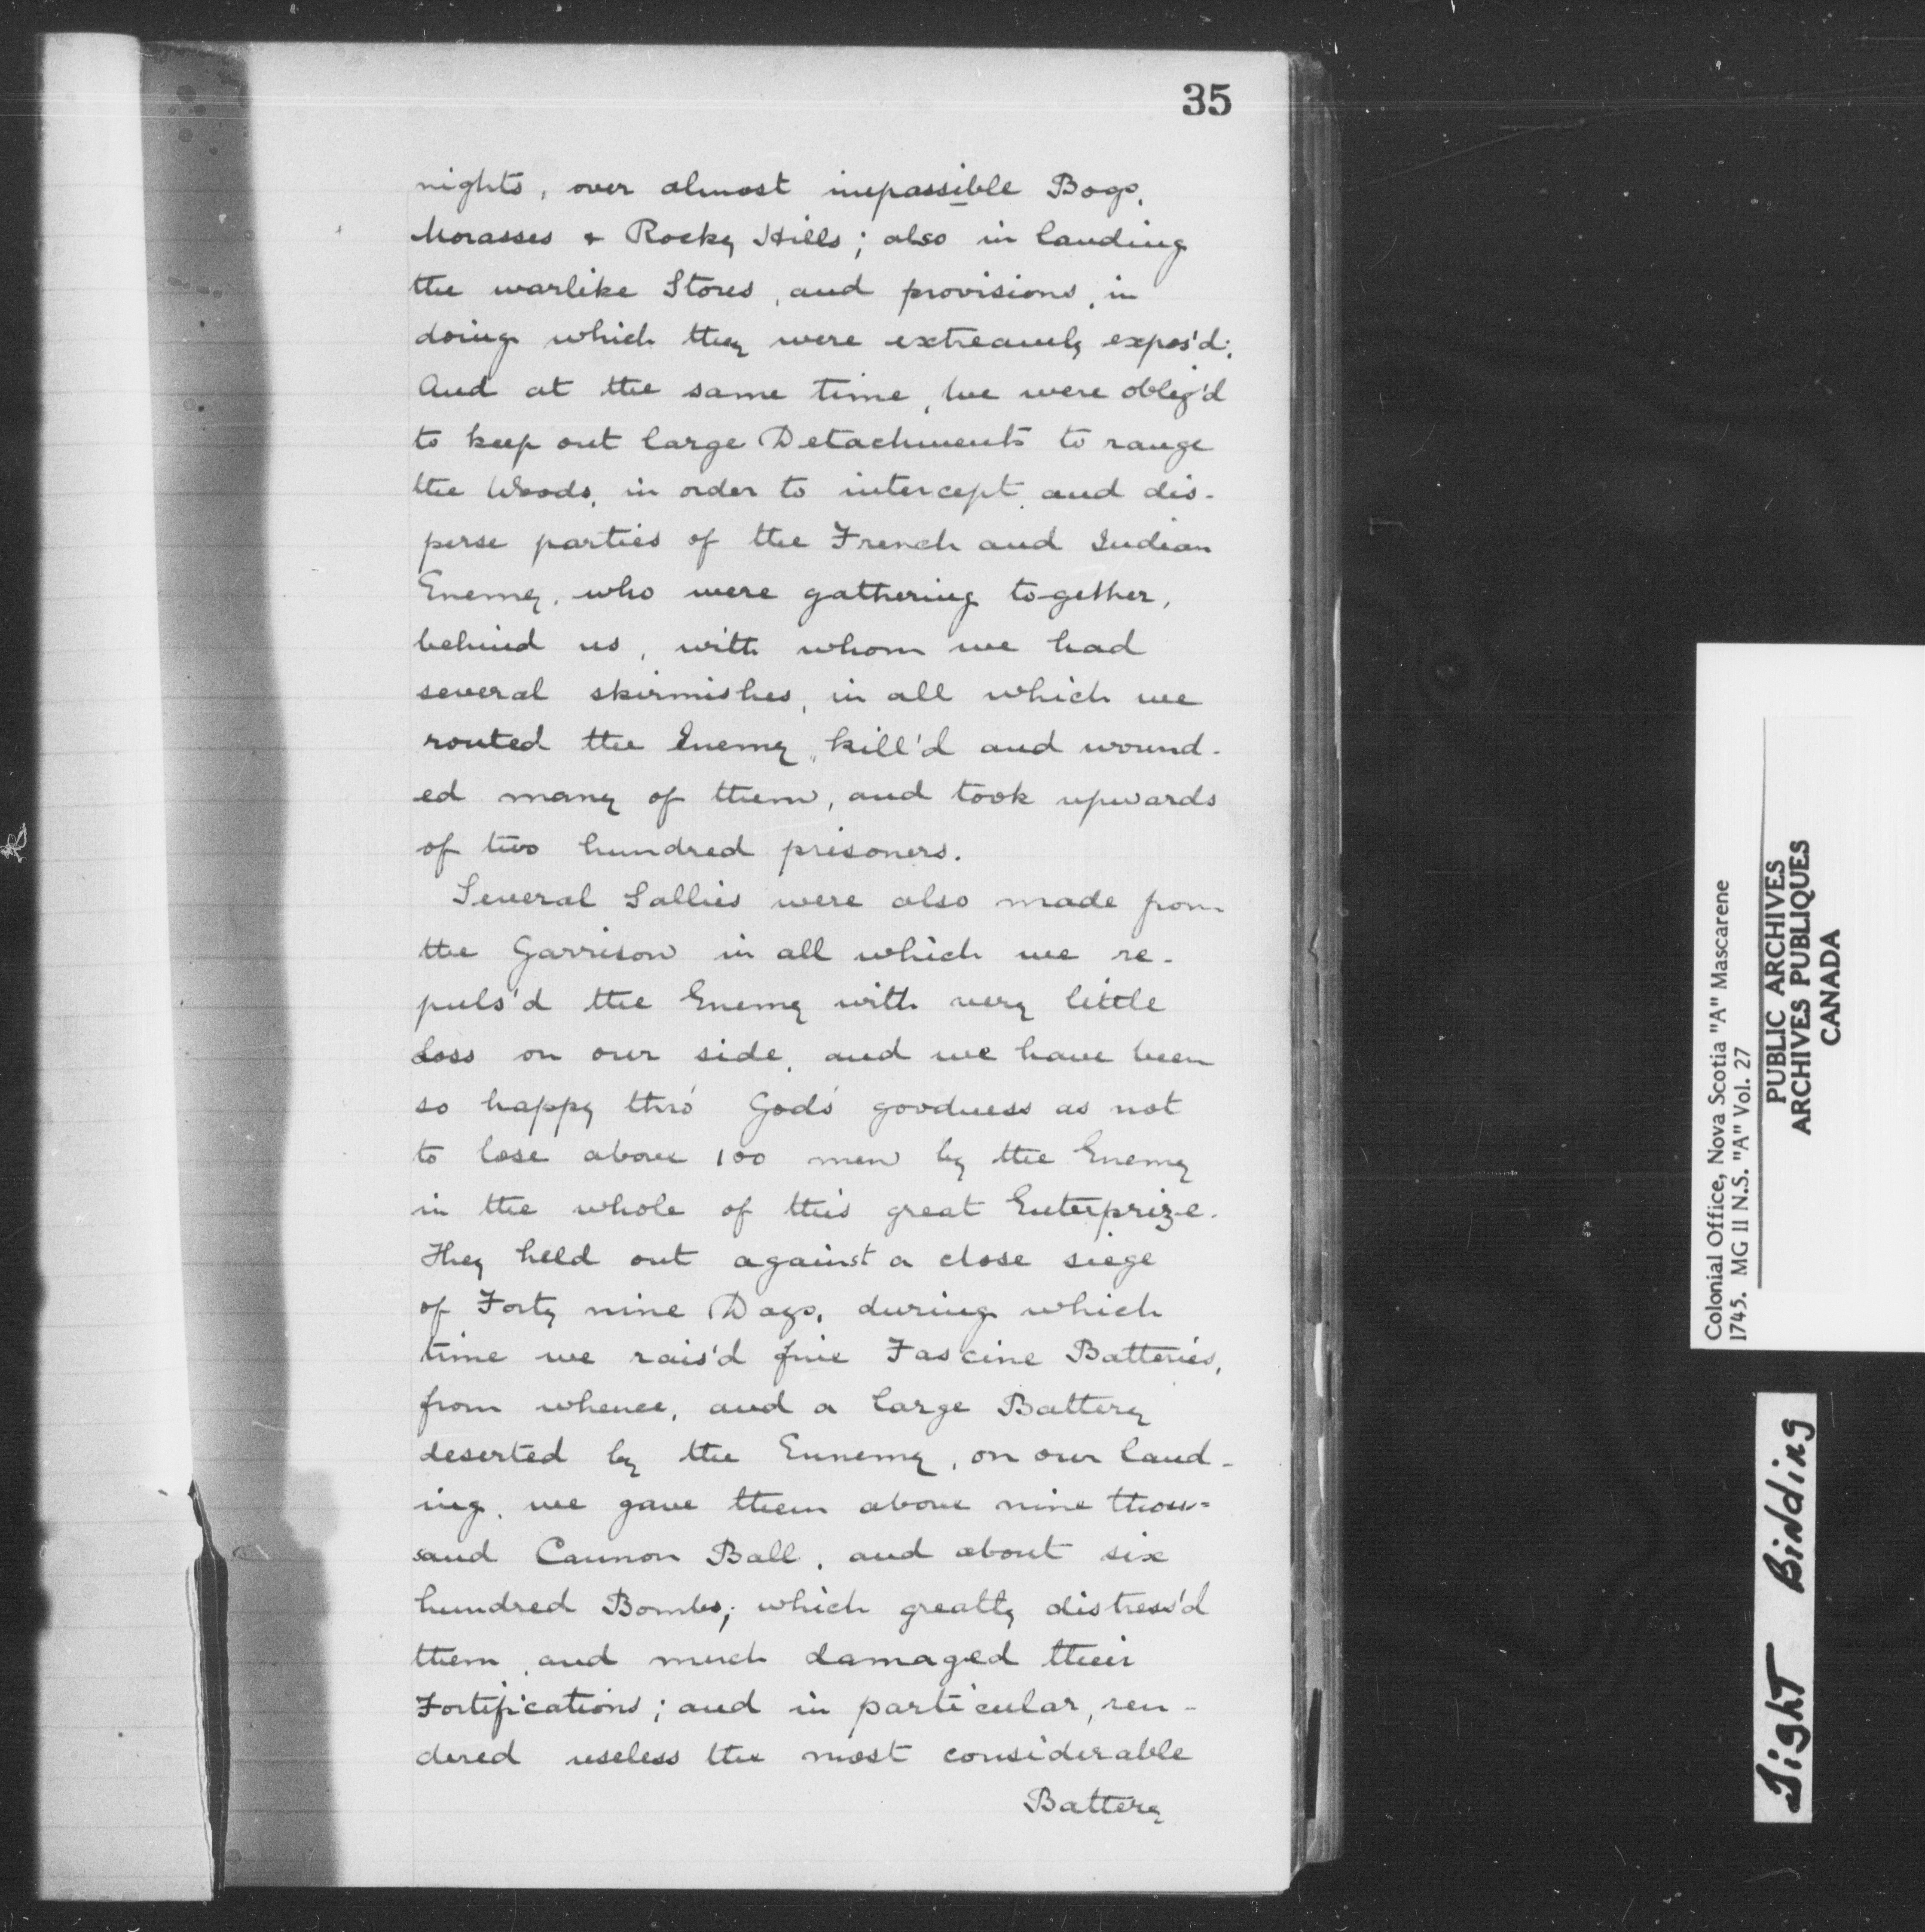 35
nights, over almost impassible Bogs,
Morasses & Rocky Hills; also in landing
the warlike Stores, and provisions, in
doing which they were extreamly expos'd;
And at the same time, we were oblig'd
to keep out large Detachments to range
the Woods, in order to intercept, and dis-
perse parties of the French and Indian
Enemy, who were gathering together,
behind us, with whom we had
several skirmishes, in all which we
routed the Enemy, kill'd and wound-
ed many of them, and took upwards
of two hundred prisoners.
Several Sallies were also made from
the Garrison in all which we re-
puls'd the Enemy with very little
Loss on our side, and we have been
so happy thro' God's goodness as not
to lose above 100 men by the Enemy
in the whole of this great Enterprize.
They held out against a close siege
of Forty nine Days, during which
time we rais'd five Fascine Batteries,
from whence, and a large Battery
deserted by the Ennemy, on our land-
ing, we gave them above nine thou=
sand Cannon Ball, and about six
hundred Bombs; which greatly distress'd
them, and much damaged their
Fortifications; and in particular, ren-
dered useless the most considerable
Battery
Colonial Office, Nova Scotia "A" Mascarene
1745. MG 11 N.S. "A" Vol. 27
PUBLIC ARCHIVES
ARCHIVES PUBLIQUES
CANADA
Tight Binding